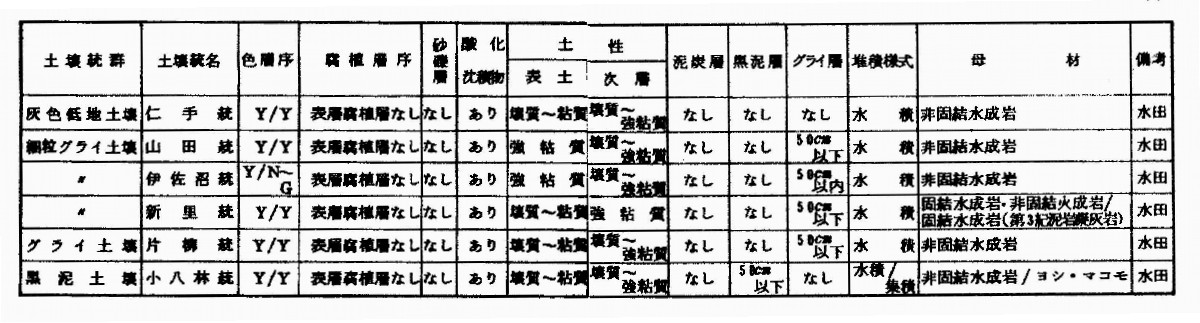 土壌統群 土壌統名 色層序 腐植層序 砂礫層 酸化沈積物 土性 表土 次層 泥炭層 黒泥層 グライ層 堆積様式 母材 備考
灰色低地土壌 仁手統 Y/Y 表層腐植層なし なし あり 壌質～粘質 壌質～強粘質 なし なし なし 水積 非固結水成岩 水田
細粒グライ土壌 山田統 Y/Y 表層腐植層なし なし あり 強粘質 壌質～強粘質 なし なし 50cm以下 水積 非固結水成岩 水田
〃 伊佐沼統 Y/N～G 表層腐植層なし なし あり 強粘質 壌質～強粘質 なし なし 50cm以内 水積 非固結水成岩 水田
〃 新里統 Y/Y 表層腐植層なし なし あり 壌質～粘質 強粘質 なし なし 50cm以下 水積 固結水成岩・非固結火成岩/固結水成岩(第3紀泥岩凝灰岩) 水田
グライ土壌 片柳統 Y/Y 表層腐植層なし なし あり 壌質～粘質 壌質～強粘質 なし なし 50cm以下 水積 非固結水成岩 水田
黒泥土壌 小八林統 Y/Y 表層腐植層なし なし あり 壌質～粘質 壌質～強粘質 なし 50cm以下 なし 水積/集積 非固結水成岩/ヨシ・マコモ 水田